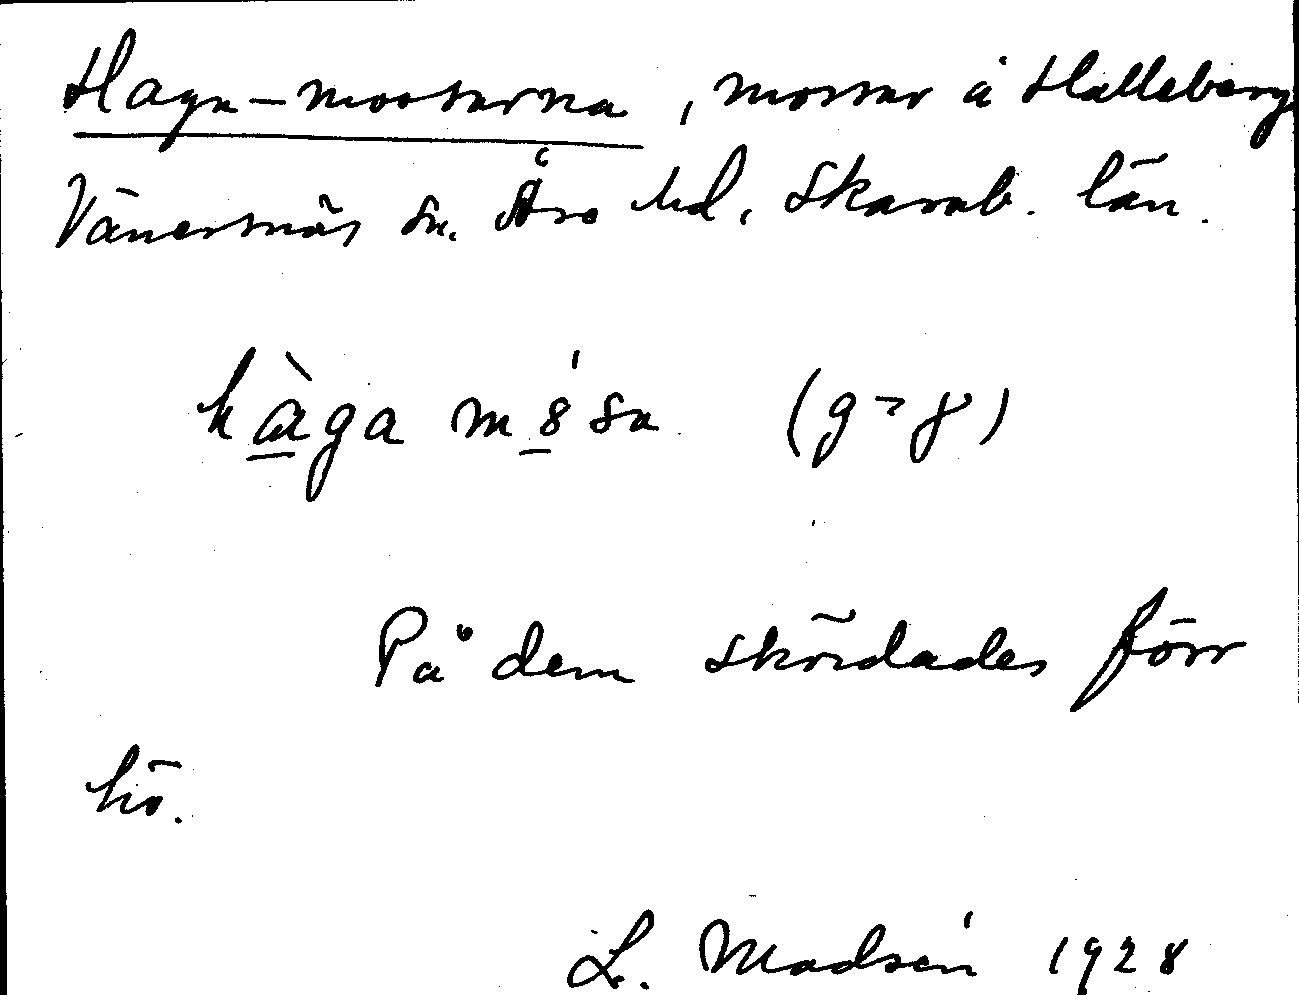 Haga-mossarna, mossar å Halleberg
Vänersnäs sn. Åse hd, Skarab. län.
hàga m8́sa (g=ɣ)
På dem skördades förr
hö.
L. Madsén 1928